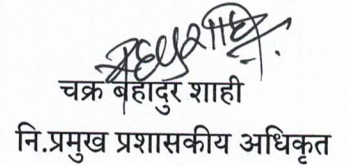 चक्र बहादुर शाही
नि.प्रमुख प्रशासकीय अधिकृत